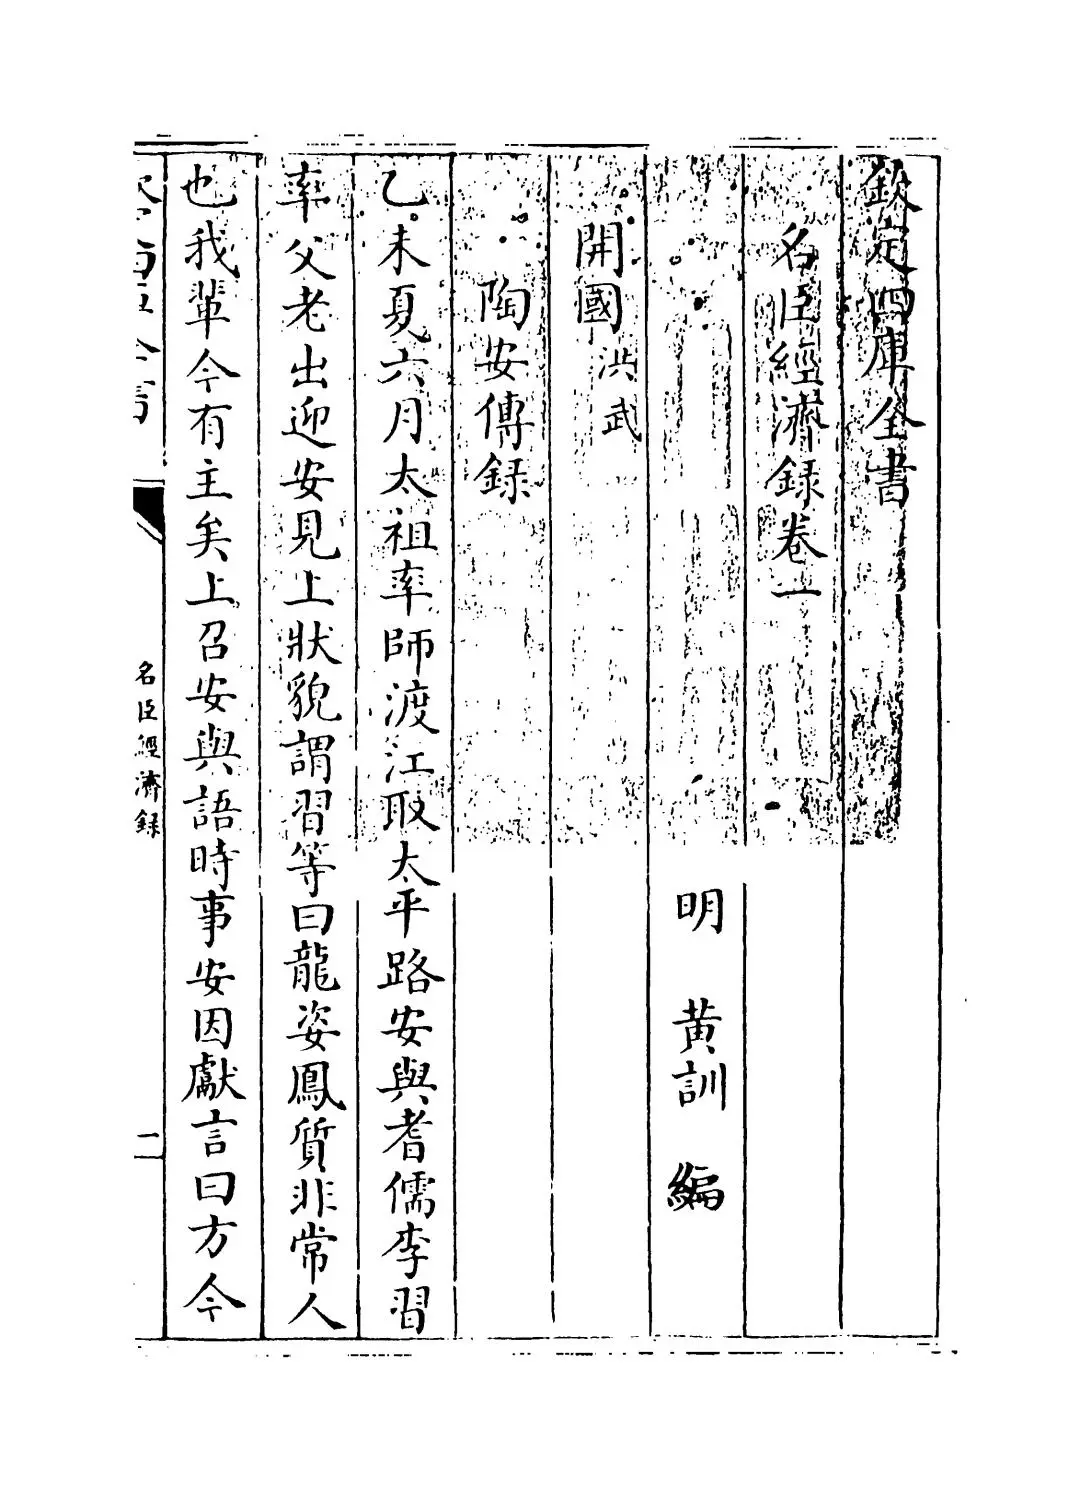 欽定四庫全書
名臣經濟録卷一
明 黄訓 編
開國洪武
陶安傳録
乙未夏六月太祖率師渡江取太平路安與耆儒李習
率父老出迎安見上狀貌謂習等曰龍姿鳳質非常人
也我輩今有主矣上召安與語時事安因獻言曰方今
名臣經濟録
二